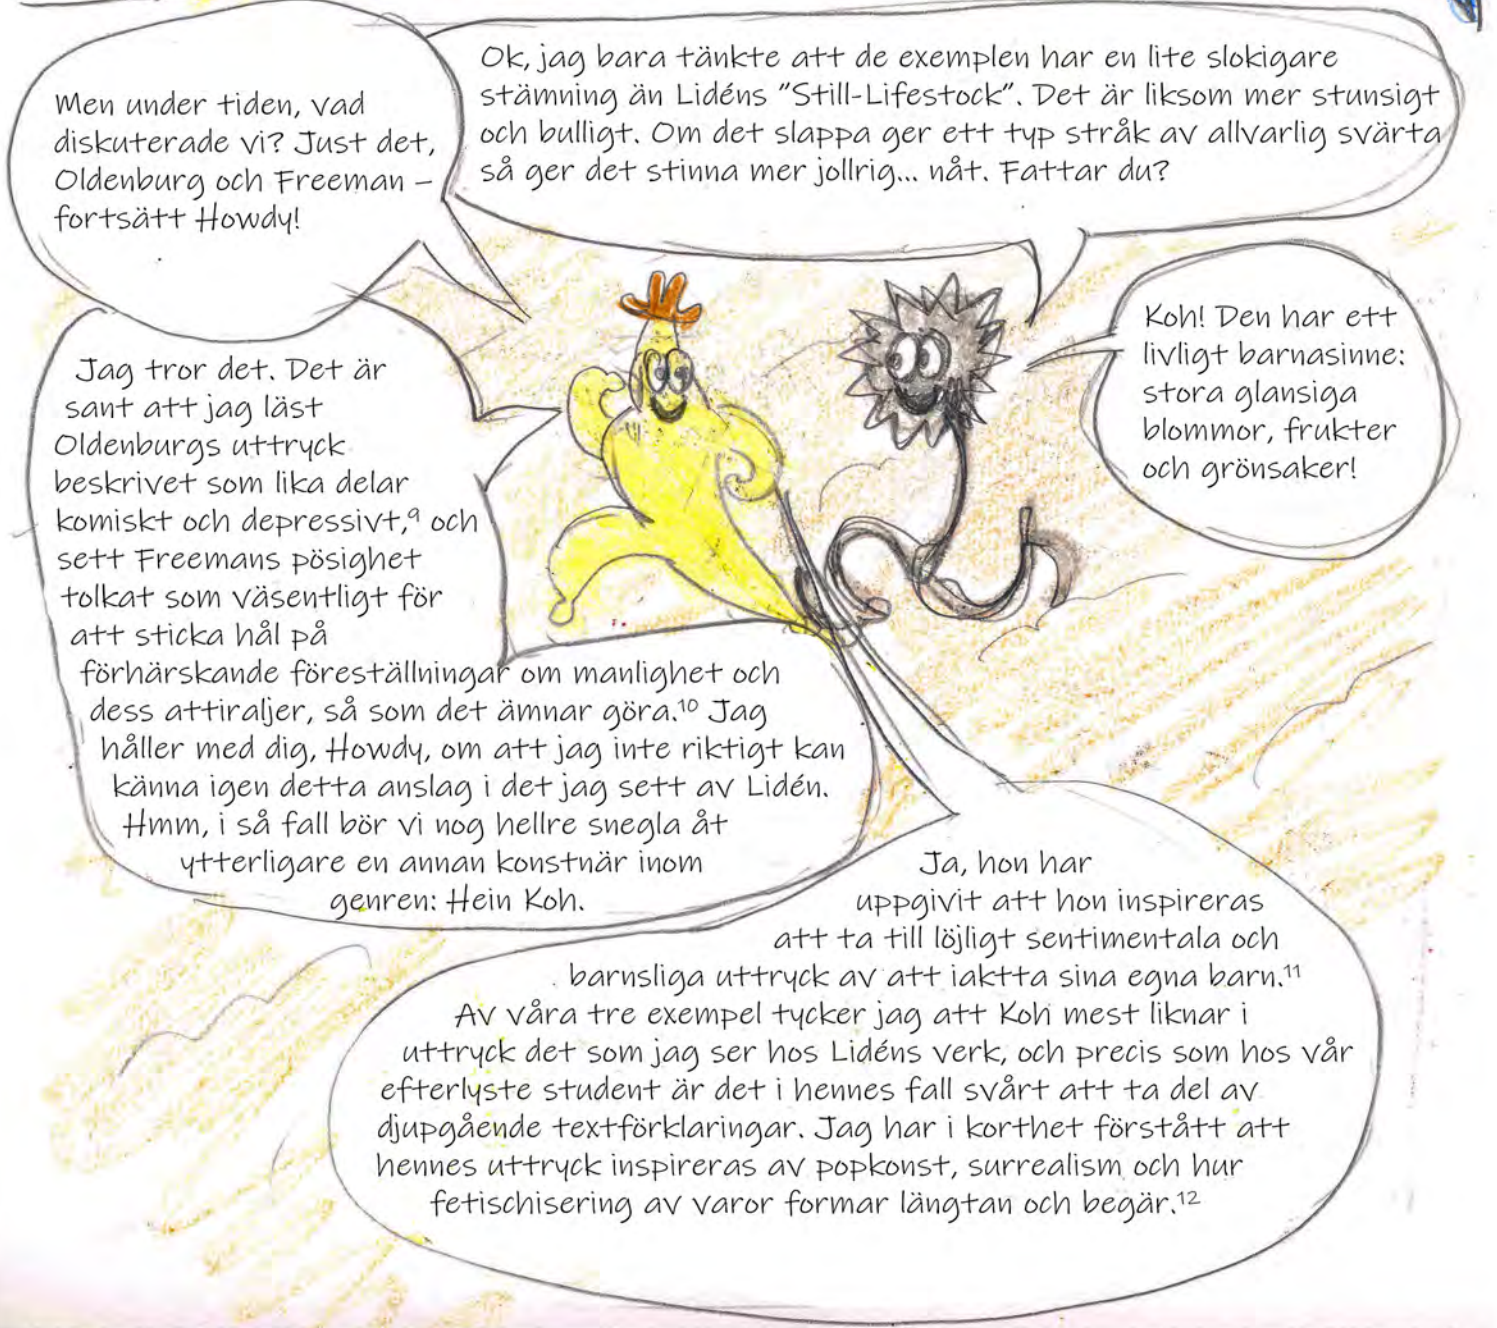 Men under tiden, vad
diskuterade vi? Just det,
Oldenburg och Freeman –
fortsätt Howdy!
Ok, jag bara tänkte att de exemplen har en lite slokigare
stämning än Lidéns ”Still-Lifestock”. Det är liksom mer stunsigt
och bulligt. Om det slappa ger ett typ stråk av allvarlig svärta
så ger det stinna mer jollrig... nåt. Fattar du?
Jag tror det. Det är
sant att jag läst
Oldenburgs uttryck
beskrivet som lika delar
komiskt och depressivt,⁹ och
sett Freemans pösighet
tolkat som väsentligt för
att sticka hål på
förhärskande föreställningar om manlighet och
dess attiraljer, så som det ämnar göra.¹⁰ Jag
håller med dig, Howdy, om att jag inte riktigt kan
känna igen detta anslag i det jag sett av Lidén.
Hmm, i så fall bör vi nog hellre snegla åt
ytterligare en annan konstnär inom
genren: Hein Koh.
Koh! Den har ett
livligt barnasinne:
stora glansiga
blommor, frukter
och grönsaker!
Ja, hon har
uppgivit att hon inspireras
att ta till löjligt sentimentala och
barnsliga uttryck av att iaktta sina egna barn.¹¹
Av våra tre exempel tycker jag att Koh mest liknar i
uttryck det som jag ser hos Lidéns verk, och precis som hos vår
efterlyste student är det i hennes fall svårt att ta del av
djupgående textförklaringar. Jag har i korthet förstått att
hennes uttryck inspireras av popkonst, surrealism och hur
fetischisering av varor formar längtan och begär.¹²